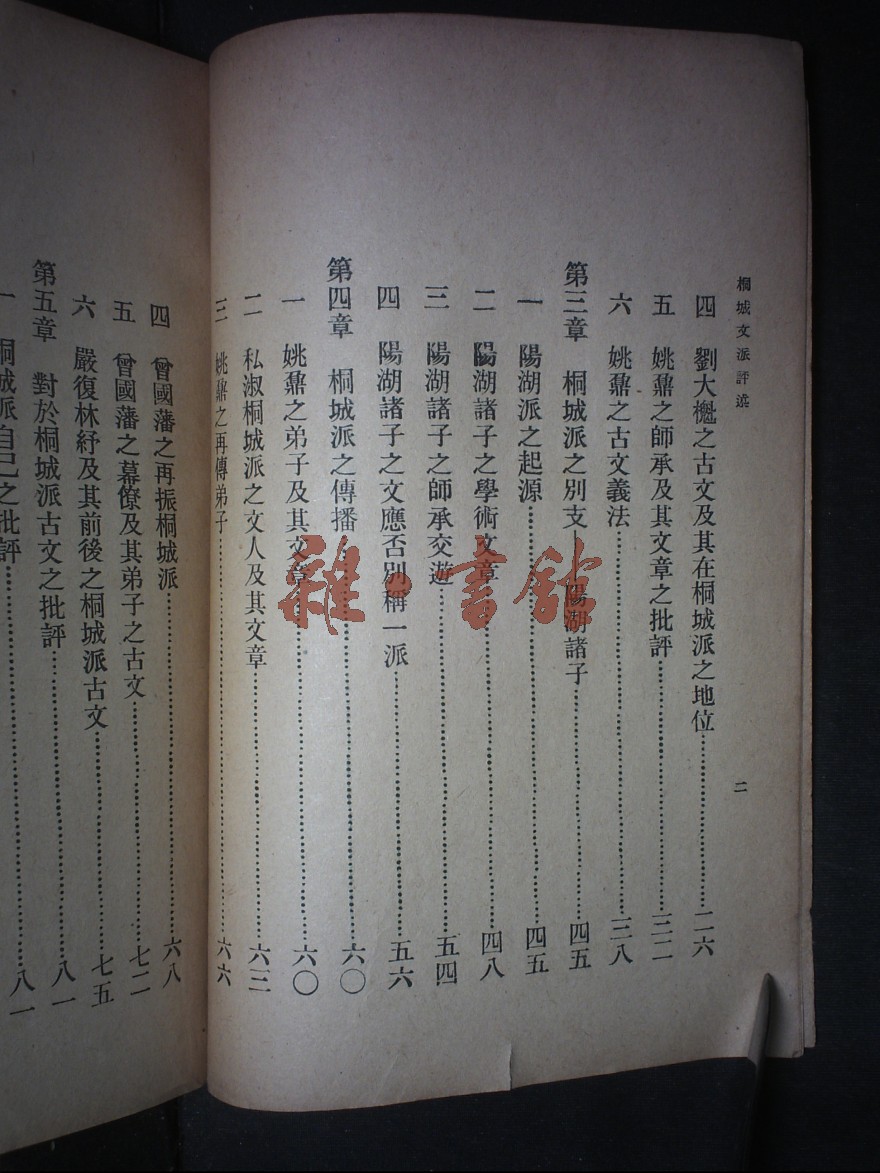 桐城文派評述
二
四 劉大櫆之古文及其在桐城派之地位……二六
五 姚鼐之師承及其文章之批評……三二
六 姚鼐之古文義法……三八
第三章 桐城派之別支—陽湖諸子……四五
一 陽湖派之起源……四五
二 陽湖諸子之學術文章……四八
三 陽湖諸子之師承交遊……五四
四 陽湖諸子之文應否別稱一派……五六
第四章 桐城派之傳播……六〇
一 姚鼐之弟子及其文章……六〇
二 私淑桐城派之文人及其文章……六三
三 姚鼐之再傳弟子……六六
四 曾國藩之再振桐城派……六八
五 曾國藩之幕僚及其弟子之古文……七二
六 嚴復林紓及其前後之桐城派古文……七五
第五章 對於桐城派古文之批評……八一
一 桐城派自己之批評……八一
雜·書館